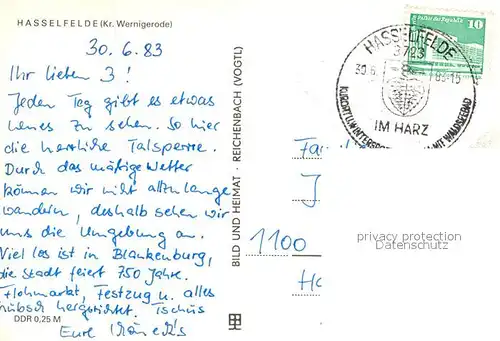 HASSELFELDE (Kr. Wernigerode)
30.6.83
Ihr lieben 3!
Jeden Tag gibt es etwas
neues zu sehen. So hier
die herrliche Talsperre.
Durch das mäßige Wetter
können wir nicht allzu lange
wandern, deshalb sehen wir
uns die Umgebung an.
Viel los ist in Blankenburg,
die Stadt feiert 750 Jahre.
Flohmarkt, Festzug u. alles
hübsch hergerichtet. Tschüs
Eure
DDR 0,25 M
BILD UND HEIMAT · REICHENBACH (VOGTL)
10
HASSELFELDE
3723
30.6. 83-15
IM HARZ
Fa
J
1100
Ho
privacy protection
Datenschutz